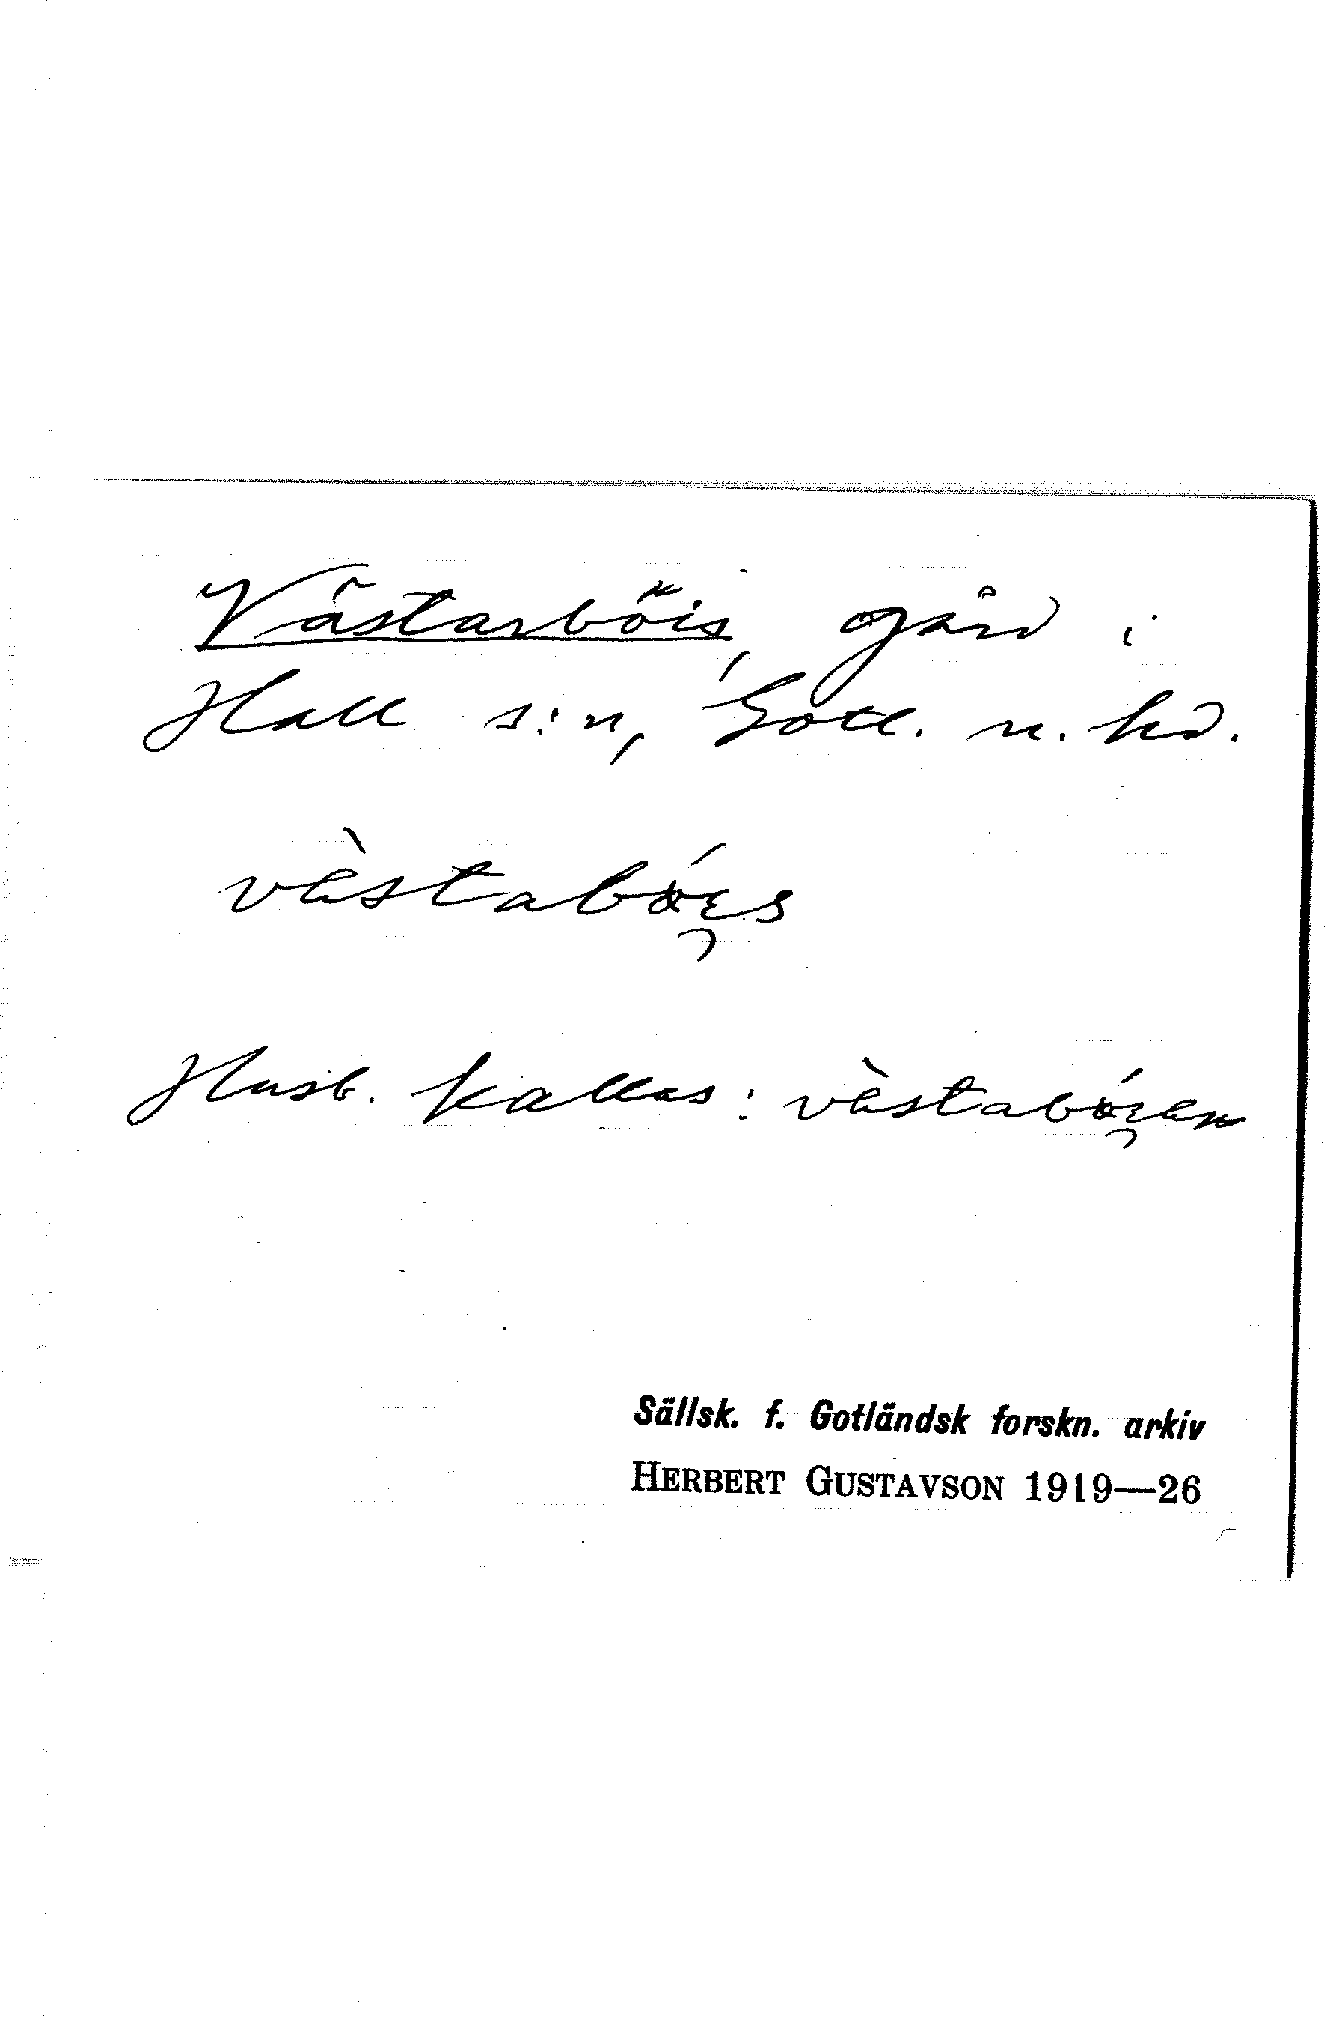 Västarböis, gård i
Hall s:n, Gotl. n. hd.
västabóıs
Husb. kallas: västabóıen
Sällsk. f. Gotländsk forskn. arkiv
HERBERT GUSTAVSON 1919—26